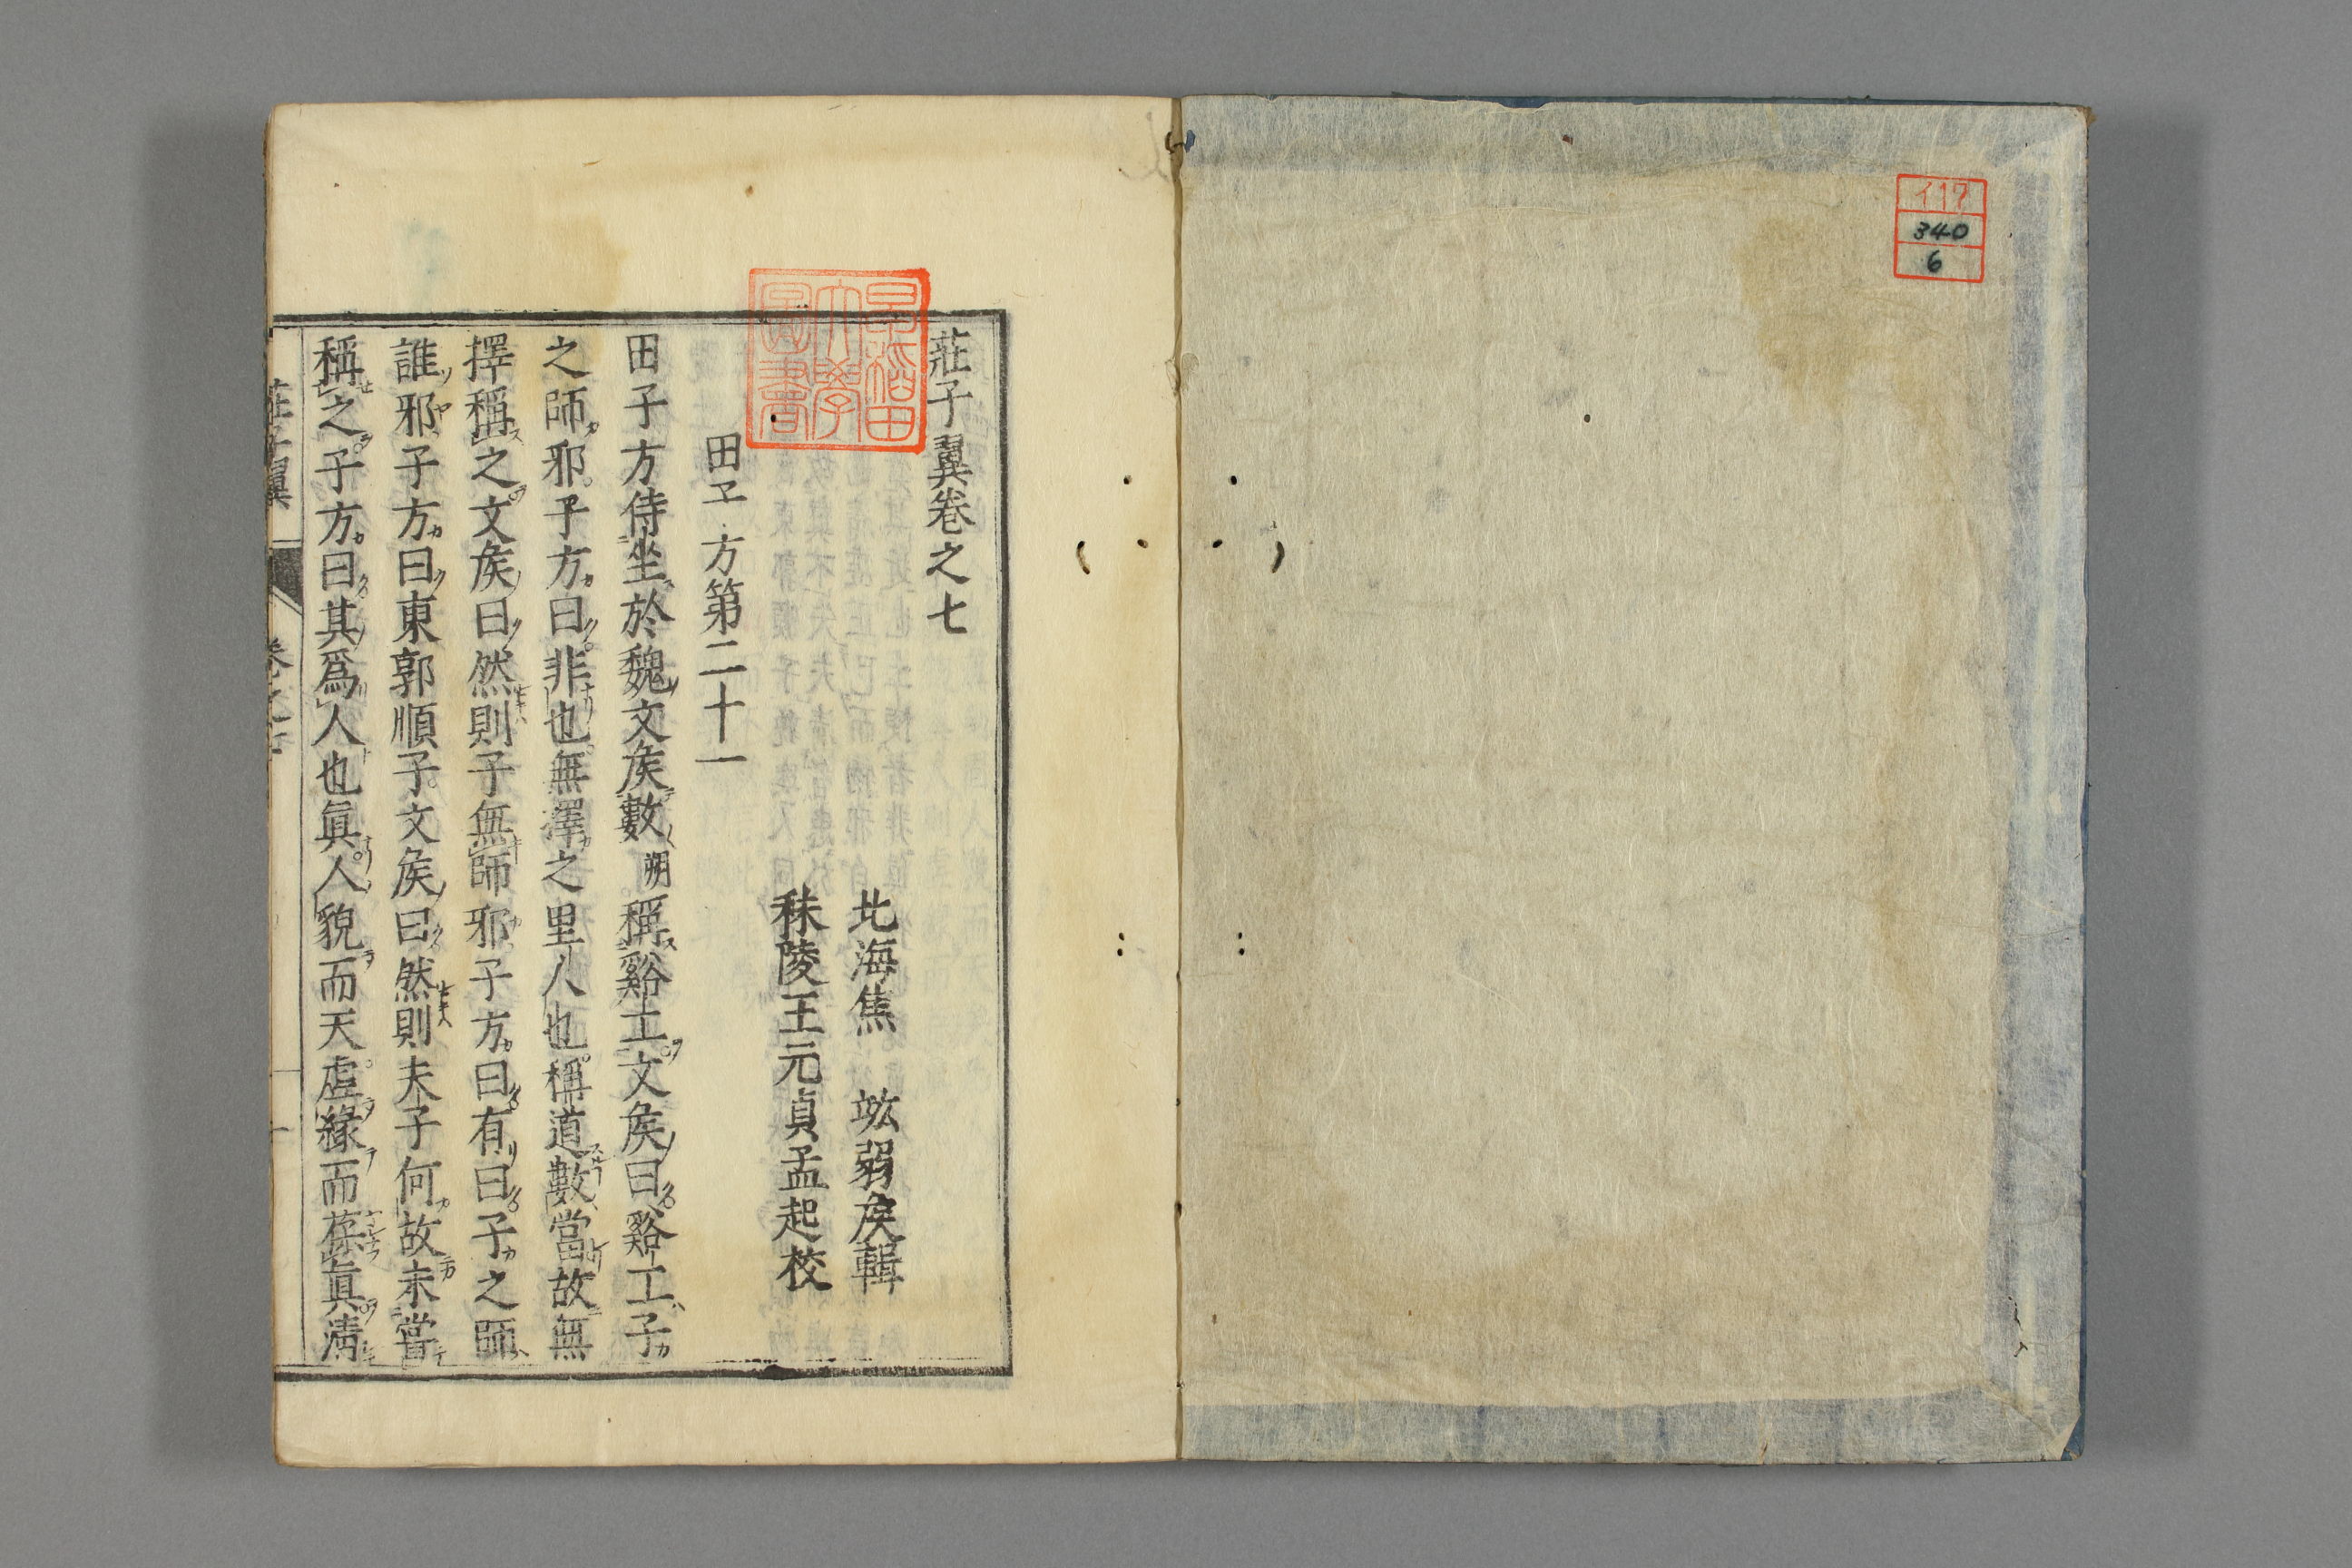 イ17
340
6
莊子翼卷之七
早稲田
大學
圖書
北海焦　竑弱侯輯
秣陵王元貞孟起校
田子方第二十一
田子方侍坐於魏文侯數朔稱谿工文侯曰谿工子
之師邪子方曰非也無澤之里人也稱道數當故無
擇稱之文侯曰然則子無師邪子方曰有曰子之師
誰邪子方曰東郭順子文侯曰然則夫子何故未嘗
稱之子方曰其爲人也眞人貌而天虛緣而葆眞淸
莊子翼
卷之七
一